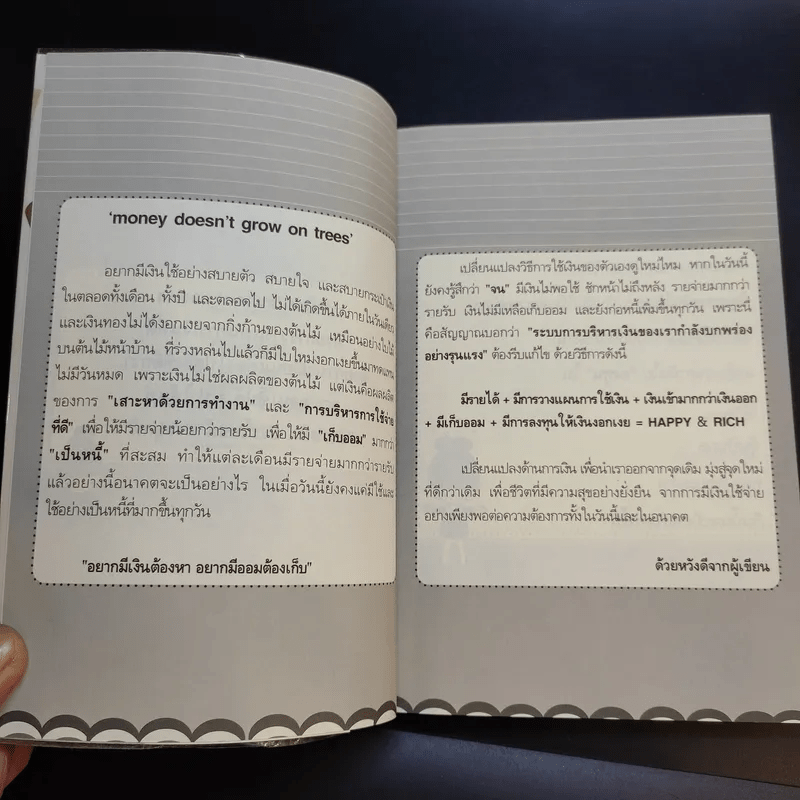 'money doesn't grow on trees'
อยากมีเงินใช้อย่างสบายตัว สบายใจ และสบายกระเป๋าเงิน
ในตลอดทั้งเดือน ทั้งปี และตลอดไป ไม่ได้เกิดขึ้นได้ภายในวันเดียว
และเงินทองไม่ได้งอกเงยจากกิ่งก้านของต้นไม้ เหมือนอย่างใบไม้
บนต้นไม้หน้าบ้าน ที่ร่วงหล่นไปแล้วก็มีใบใหม่งอกเงยขึ้นมาทดแทน
ไม่มีวันหมด เพราะเงินไม่ใช่ผลผลิตของต้นไม้ แต่เงินคือผลผลิต
ของการ "เสาะหาด้วยการทำงาน" และ "การบริหารการใช้จ่าย
ที่ดี" เพื่อให้มีรายจ่ายน้อยกว่ารายรับ เพื่อให้มี "เก็บออม" มากกว่า
"เป็นหนี้" ที่สะสม ทำให้แต่ละเดือนมีรายจ่ายมากกว่ารายรับ
แล้วอย่างนี้อนาคตจะเป็นอย่างไร ในเมื่อวันนี้ยังคงแค่มีใช้และ
ใช้อย่างเป็นหนี้ที่มากขึ้นทุกวัน
"อยากมีเงินต้องหา อยากมีออมต้องเก็บ"
เปลี่ยนแปลงวิธีการใช้เงินของตัวเองดูใหม่ไหม หากในวันนี้
ยังคงรู้สึกว่า "จน" มีเงินไม่พอใช้ ชักหน้าไม่ถึงหลัง รายจ่ายมากกว่า
รายรับ เงินไม่มีเหลือเก็บออม และยังก่อหนี้เพิ่มขึ้นทุกวัน เพราะนี่
คือสัญญาณบอกว่า "ระบบการบริหารเงินของเรากำลังบกพร่อง
อย่างรุนแรง" ต้องรีบแก้ไข ด้วยวิธีการดังนี้
มีรายได้ + มีการวางแผนการใช้เงิน + เงินเข้ามากกว่าเงินออก
+ มีเก็บออม + มีการลงทุนให้เงินงอกเงย = HAPPY & RICH
เปลี่ยนแปลงด้านการเงิน เพื่อนำเราออกจากจุดเดิม มุ่งสู่จุดใหม่
ที่ดีกว่าเดิม เพื่อชีวิตที่มีความสุขอย่างยั่งยืน จากการมีเงินใช้จ่าย
อย่างเพียงพอต่อความต้องการทั้งในวันนี้และในอนาคต
ด้วยหวังดีจากผู้เขียน